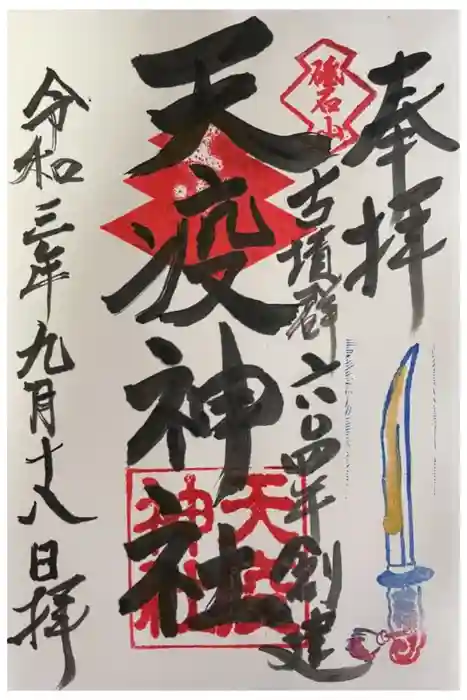 奉拝
砥石山
古墳群六〇四年創建
天疫神社
天疫神社
令和三年九月十八日拝